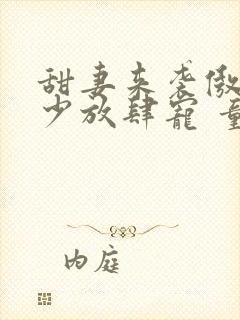 甜妻来袭傲
少放肆宠 童
内庭